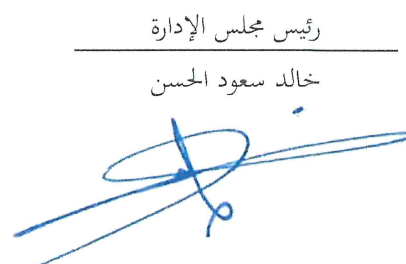 رئيس مجلس الإدارة
خالد سعود الحسن